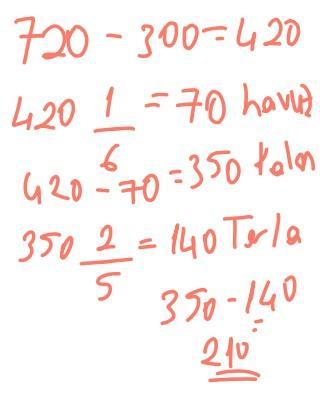 720 - 300 = 420
420 1/6 = 70 havuç
420 - 70 = 350 kalan
350 2/5 = 140 Tarla
350 - 140
=
210